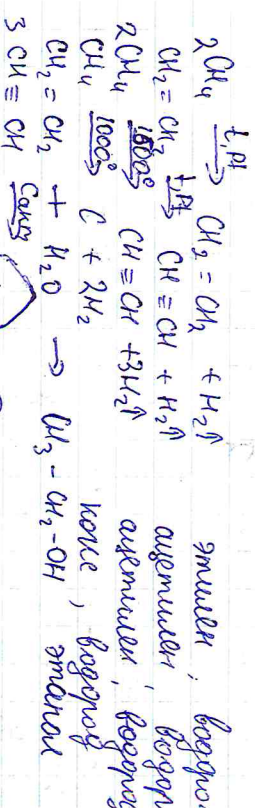 2CH₄ —t, Pt→ CH₂ = CH₂ + H₂↑ этилен, 
CH₂ = CH₂ —t, Pt→ CH ≡ CH + H₂↑ ацетилен,
2CH₄ —1500°→ CH ≡ CH + 3H₂↑ ацетилен,
CH₄ —1000°→ C + 2H₂ кокс, водород
CH₂ = CH₂ + H₂O → CH₃ – CH₂ – OH этанол
3 CH ≡ CH —Cакт→